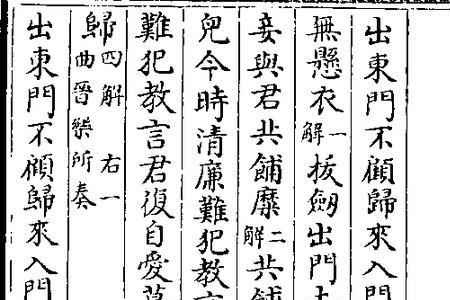 出東門不顧歸來入門
無懸衣一解拔劒出門
妾與君共餔糜二解共餔
兒今時清廉難犯教言
難犯教言君復自愛莫
歸四解 右一曲晉樂所奏
出東門不顧歸來入門